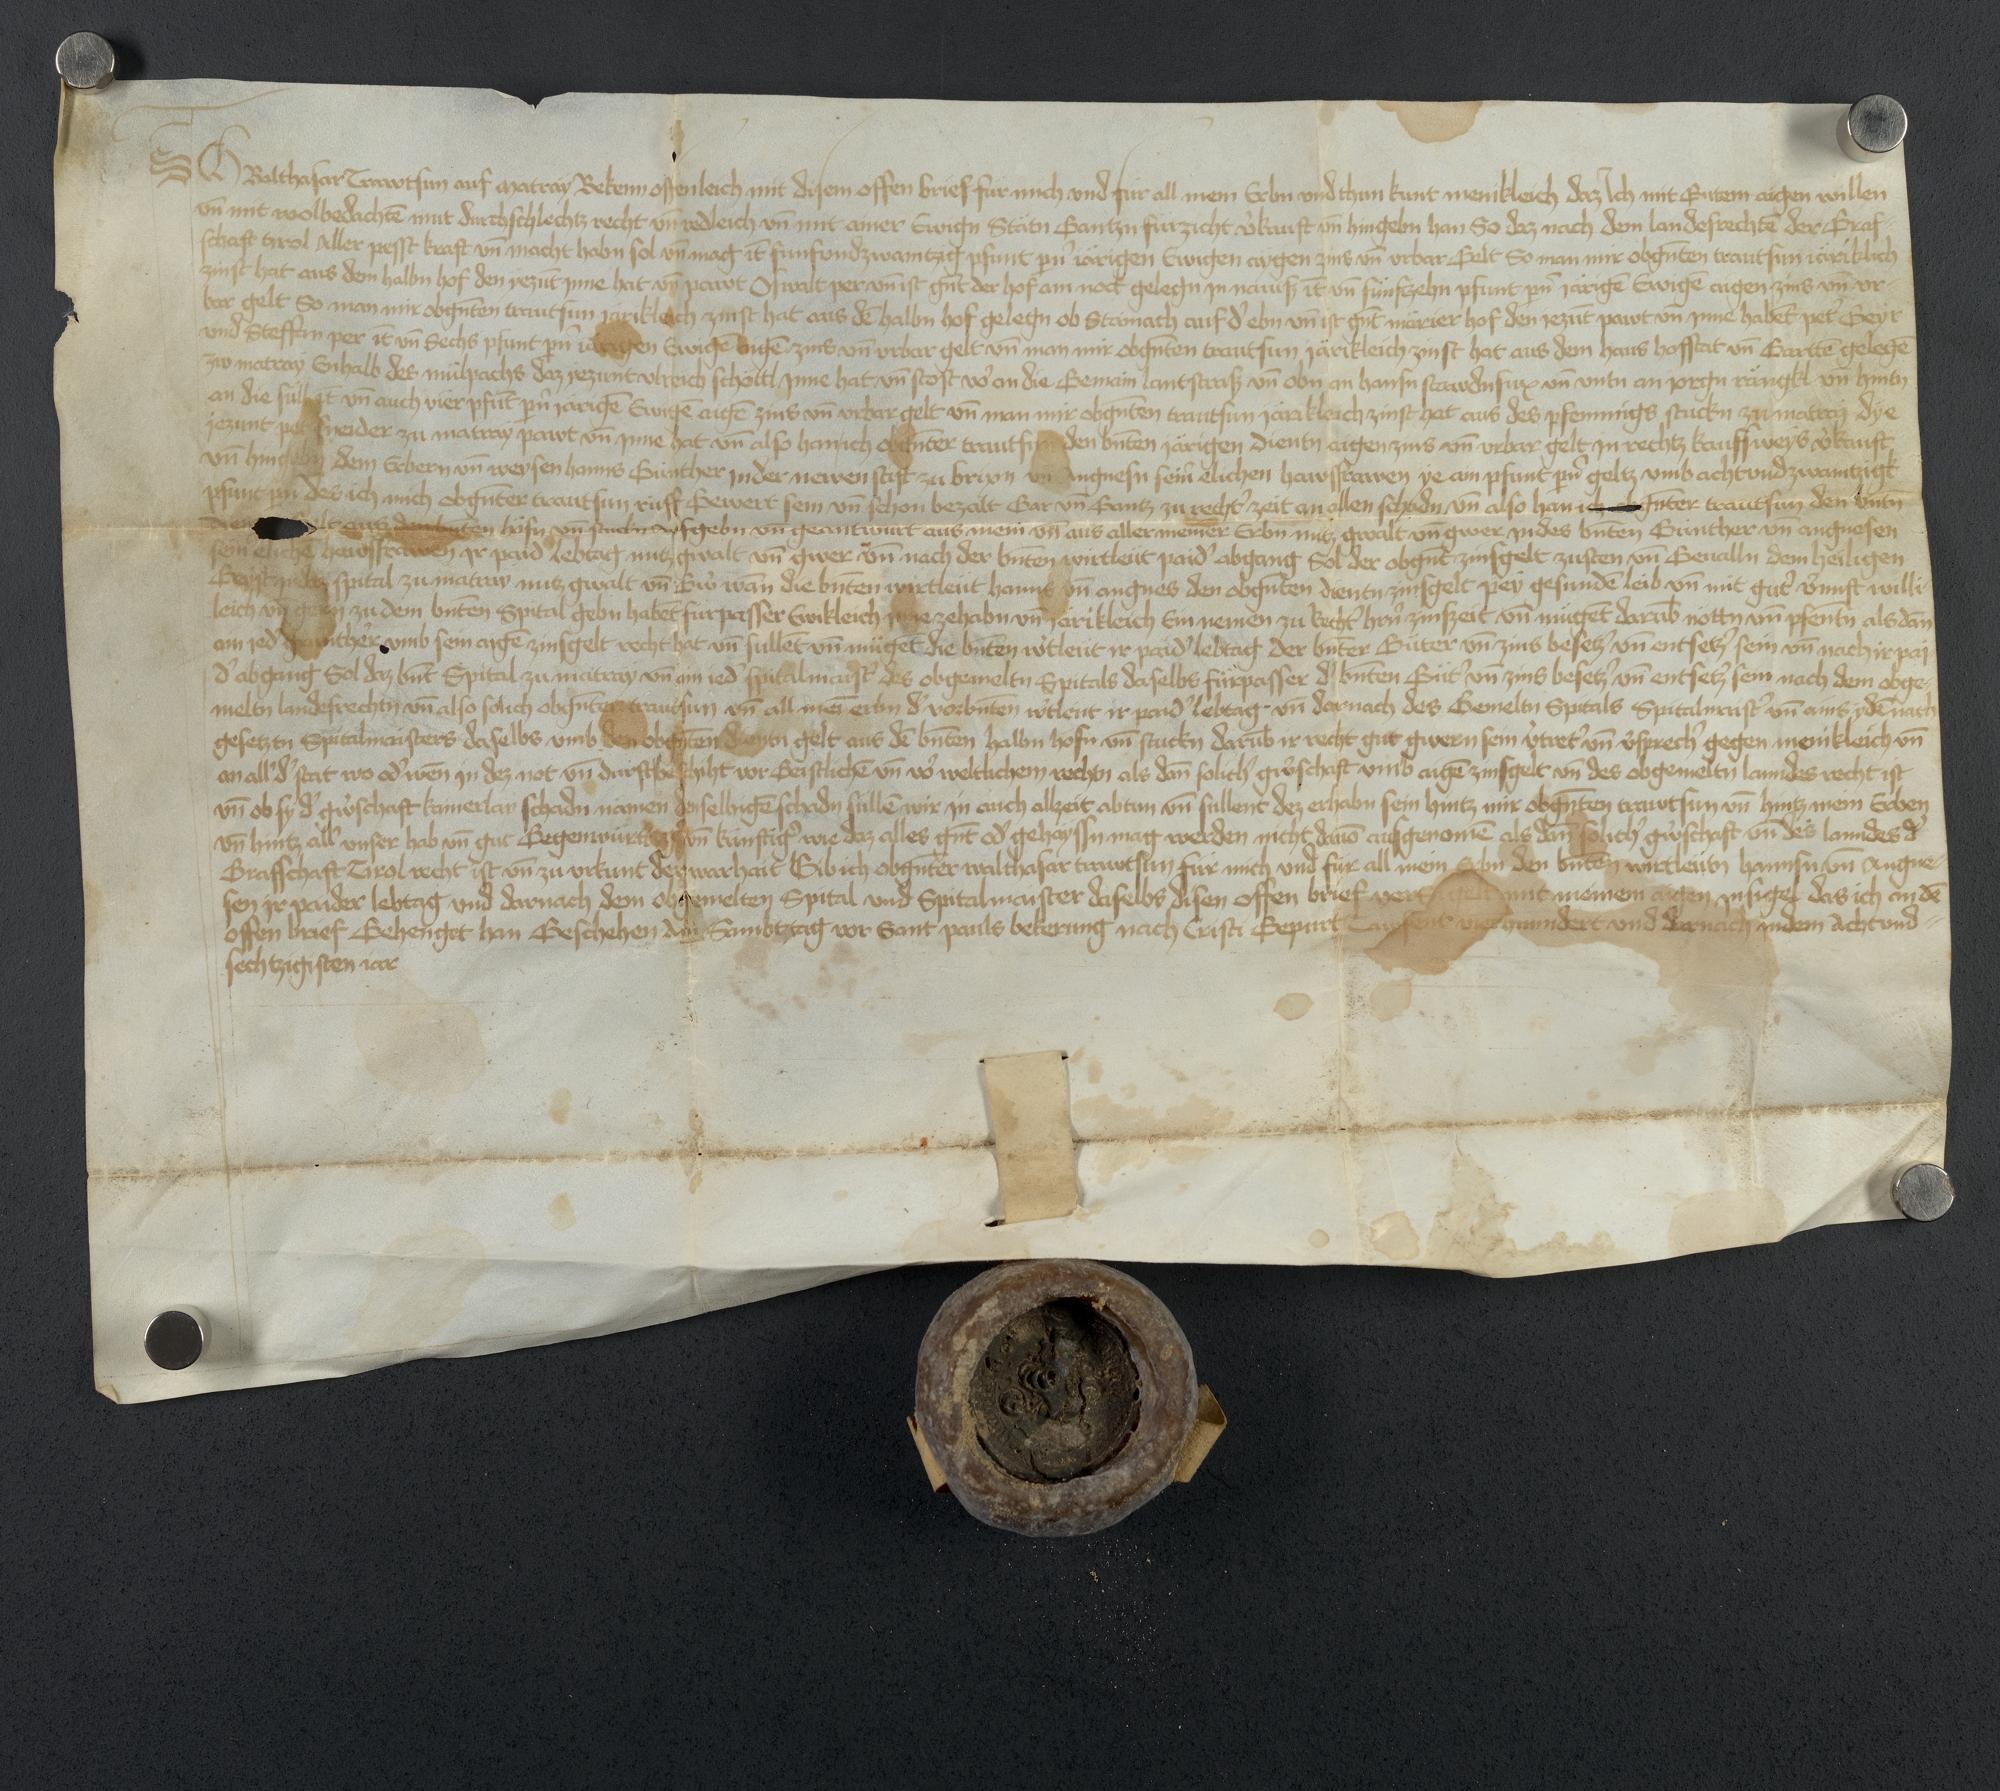 Ich Balthasar Trawtsun auf Matray Bekenn offenleich mit disem offen brief für mich vnd für all mein Erbn vnd thun kunt menikleich daz Ich mit Gutem aigen willen
vn̄ mit wolbedachtē mut durchschlechtz recht vn̄ redleich vn̄ mit ainer Ewign Stätn Gantzn fürzicht v̉kauft vn̄ hingebn han So daz nach dem landesrechtē der Graf-
schaft tirol Aller pesst kraft vn̄ macht habn sol vn̄ mag it̄ funfvndzwaintzig pfunt pn̄ iärigen Ewigen aygen zins vn̄ vrbar Gelt So man mir obgn̄ten trautsun iärikleich
zinst hat aus dem halbn hof den yezūt ynne hat vn̄ pawt Oswalt per vn̄ ist gn̄t der hof am nock gelegn in nauis it̄ vn̄ fünfzehn pfunt pn̄ järigē Ewigē aigen zins vn̄ vr-
bar gelt So man mir obgn̄ten trautsun järikleich zinst hat aus dē halbn hof gelegn ob Stainach auf d̉ ebn vn̄ ist gn̄t märier hof den jezūt pawt vn̄ ynne habēt pet̉ Geyr
vnd Steffan per it̄ vn̄ Sechs pfunt pn̄ iärigen Ewigē aigē zins vn̄ vrbar gelt vn̄ man mir obgn̄ten trautsun järikleich zinst hat aus dem haus hofstat vn̄ Gartē gelegē
zw matray Enhalb des mülpachs daz yezunt vlreich schöttl ynne hat vn̄ stost vo̓ an die Gemain lantstrass vn̄ obn an hansn stawdnfux vn̄ vntn an jorgn rängkl vn̄ hintn
an die süll it̄ vn̄ auch vier pfūt pn̄ järigē Ewigē aigē zins vn̄ vrbar gelt vn̄ man mir obgn̄ten trautsun järikleich zinst hat aus des pfennings stuckn zu matray dye
jezunt pet̉ sneider zu matray pawt vn̄ ynne hat vn̄ also han ich obgn̄ter trautsun den bn̄ten järigen dientn aigen zins vn̄ vrbar gelt in rechtz kauffsweys v̉kauft
vn̄ hingebn dem Erbern vn̄ weysen hanns Günther in der newen stift zu brixn vn̄ Angnesn seiner elichen hawsfrawen ye ain pfunt pn̄ geltz vmb achtvndzwaintzigk
pfunt pn̄ des ich mich obgn̄ter trautsun rüff Gewert sein vn̄ schon bezalt Gar vn̄ Gantz zu recht̉ zeit an allen schadn vn̄ also han ich obgn̄ter trautsun den bn̄tn
aus den bn̄ten höfn vn̄ stuckn aufgebn vn̄ geantwurt aus mein vn̄ aus aller meiner Erbn nutz gwalt vn̄ gwer in des bn̄ten Günther vn̄ angnesen
sein elichē hawsfrawen jr paid̉ lebtag nutz gwalt vn̄ gwer vn̄ nach der bn̄ten wirtleut paid̉ abgang Sol der obgn̄t zinsgelt zusten vn̄ Geualln dem heiligen
Geyst in daz spital zu matray nutz gwalt vn̄ Gw̉ wan die bn̄ten wirtleut hanns vn̄ angnes den obgn̄ten dientn zinsgelt pey gesundē leib vn̄ mit gut̉ v̉nunft willi-
leich vn̄ gern zu dem bn̄ten Spital gebn habēt fürpasser Ewikleich ynne zehabn vn̄ järikleich Ein nemen zu Recht̉ hrn̄ zinszeit vn̄ mügēt darūb nöttn vn̄ pfentn als dan̄
ain jed̉ vmb sein aigē zinsgelt recht hat vn̄ sullēt vn̄ mügēt die bn̄ten w̉tleut ir paid̉ lebtag der bn̄ten Güter vn̄ zins besetz̉ vn̄ entsetz̉ sein vn̄ nach ir pai-
d̉ abgang Sol daz bn̄t Spital zu matray vn̄ ain ied̉ spitalmaist̉ des obgemeltn Spitals daselbs fürpasser d̉ bn̄ten Güt̉ vn̄ zins besetz̉ vn̄ entsetz̉ sein nach dem obge-
meltn landesrechtn vn̄ also solich obgn̄ter trautsun vn̄ all mein erbn d̉ vorbn̄ten w̉tleut ir paid̉ lebtag vn̄ darnach des Gemeltn Spitals Spitalmaist̉ vn̄ ains ydē nach
gesetztn Spitalmaisters daselbs vmb den obgn̄ten dientn gelt aus dē bn̄ten halbn hofn vn̄ stuckn darūb ir recht gut gwern sein v̉tret̉ vn̄ v̉sprech̉ gegen menikleich vn̄
an all̉ d̉ stat wo od̉ wen in dez not vn̄ durft beschiht vor Geistlichē vn̄ vo̓ weltlichem rechtn als dan̄ solich̉ gw̉schaft vmb aigē zinsgelt vn̄ des obgemeltn lanndes recht ist
vn̄ ob sy d̉ gw̉schaft kainerlay schadn nämen denselbigē schadn sullē wir in auch allzeit abtun vn̄ sullent dez erhabn sein hintz mir obgn̄ten trawtsun vn̄ hintz mein Erben
vn̄ hintz all̉ vnser hab vn̄ gut Gegenwürtigs vn̄ künftig̉ wie daz alles gn̄t od̉ gehayssn mag werden nicht dauō ausgenomē als dan̄ solich̉ gw̉schaft vn̄ des lanndes d̉
Grafschaft Tirol recht ist vn̄ zu vrkunt der warhait Gib ich obgn̄ter walthasar trawtsun für mich vnd für all mein Erbn den bn̄ten wirtleutn hannsn vn̄ Angne-
sen jr paider lebtag vnd darnach dem obgemelten Spital vnd Spitalmaister daselbs disen offen brief versigelt mit meinem aigen insigel das ich an dē
offen brief Gehenget han Geschehen Am Sambtztag vor Sant pauls bekerung nach Cristi Gepurt Tawsent vierhundert vnd darnach in dem Achtvnd-
sechtzigisten iar